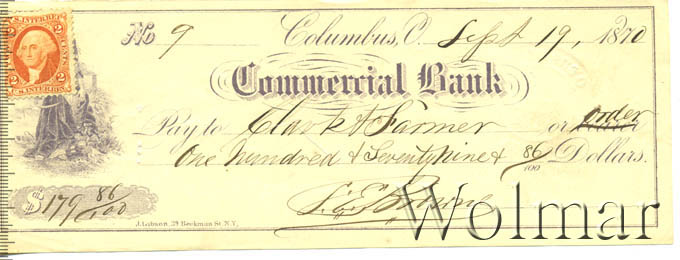 U.S. INTER. REV.
2 CENTS. 2
U.S. INTER. REV.
No 9 Columbus, O. Sept 19, 1870
Commercial Bank
Pay to Clark & Farmer or order
One hundred & Seventy nine & 86/100 Dollars.
$179 86/100
J. Gibson, 32 Beekman St. N.Y.
Wolmar